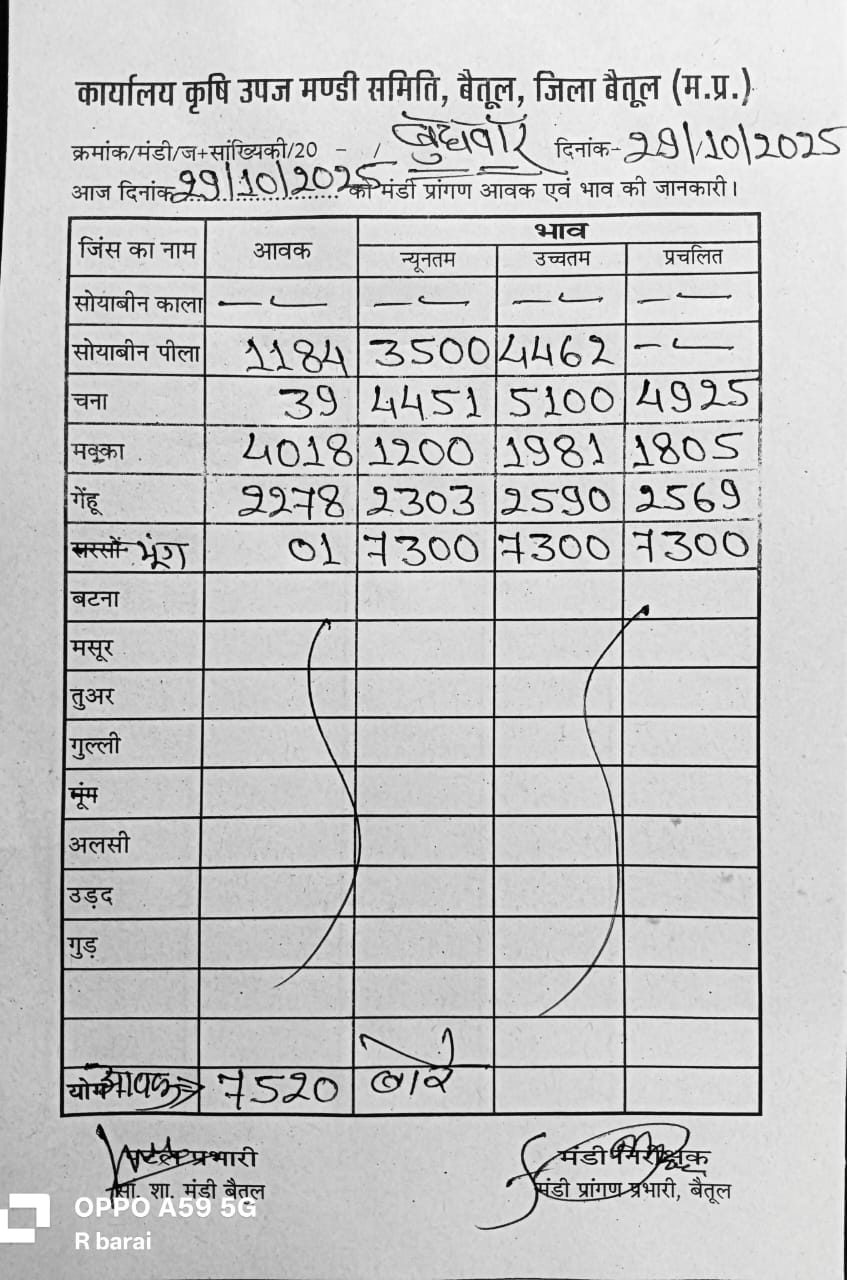 कार्यालय कृषि उपज मण्डी समिति, बैतूल, जिला बैतूल (म.प्र.)
क्रमांक/मंडी/ज+सांख्यिकी/20 - / बुधवार दिनांक- 29/10/2025
आज दिनांक 29/10/2025 को मंडी प्रांगण आवक एवं भाव की जानकारी।
जिंस का नाम आवक भाव
न्यूनतम उच्चतम प्रचलित
सोयाबीन काला - - - - - - - -
सोयाबीन पीला 1184 3500 4462 - -
चना 39 4451 5100 4925
मक्का 4018 1200 1981 1805
गेंहू 2278 2303 2590 2569
सरसों मूंग 01 7300 7300 7300
बटना
मसूर
तुअर
गुल्ली
मूंग
अलसी
उड़द
गुड़
योग आवक → 7520 बोरे
प्रभारी मंडी निरीक्षक
सां. शा. मंडी बैतूल मंडी प्रांगण प्रभारी, बैतूल
OPPO A59 5G
R barai